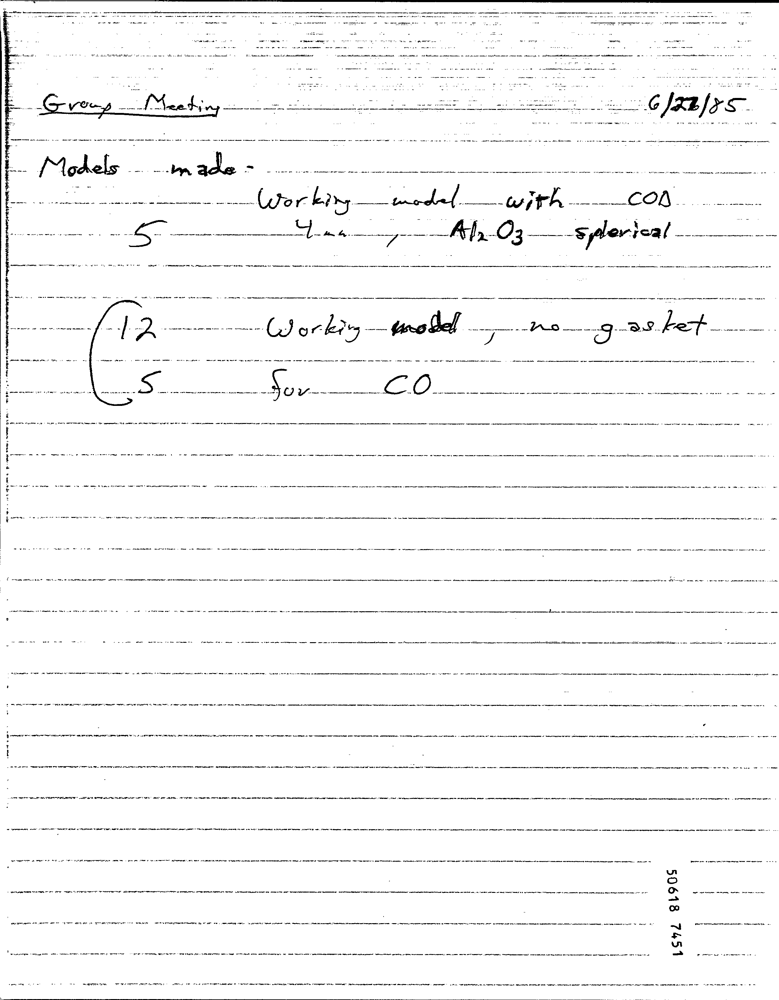 Group Meeting 6/ /85
Models made -
Working model with COD
5 4mm , Al2O3 spherical
12 Working model, no gasket
5 for CO
50618 7451